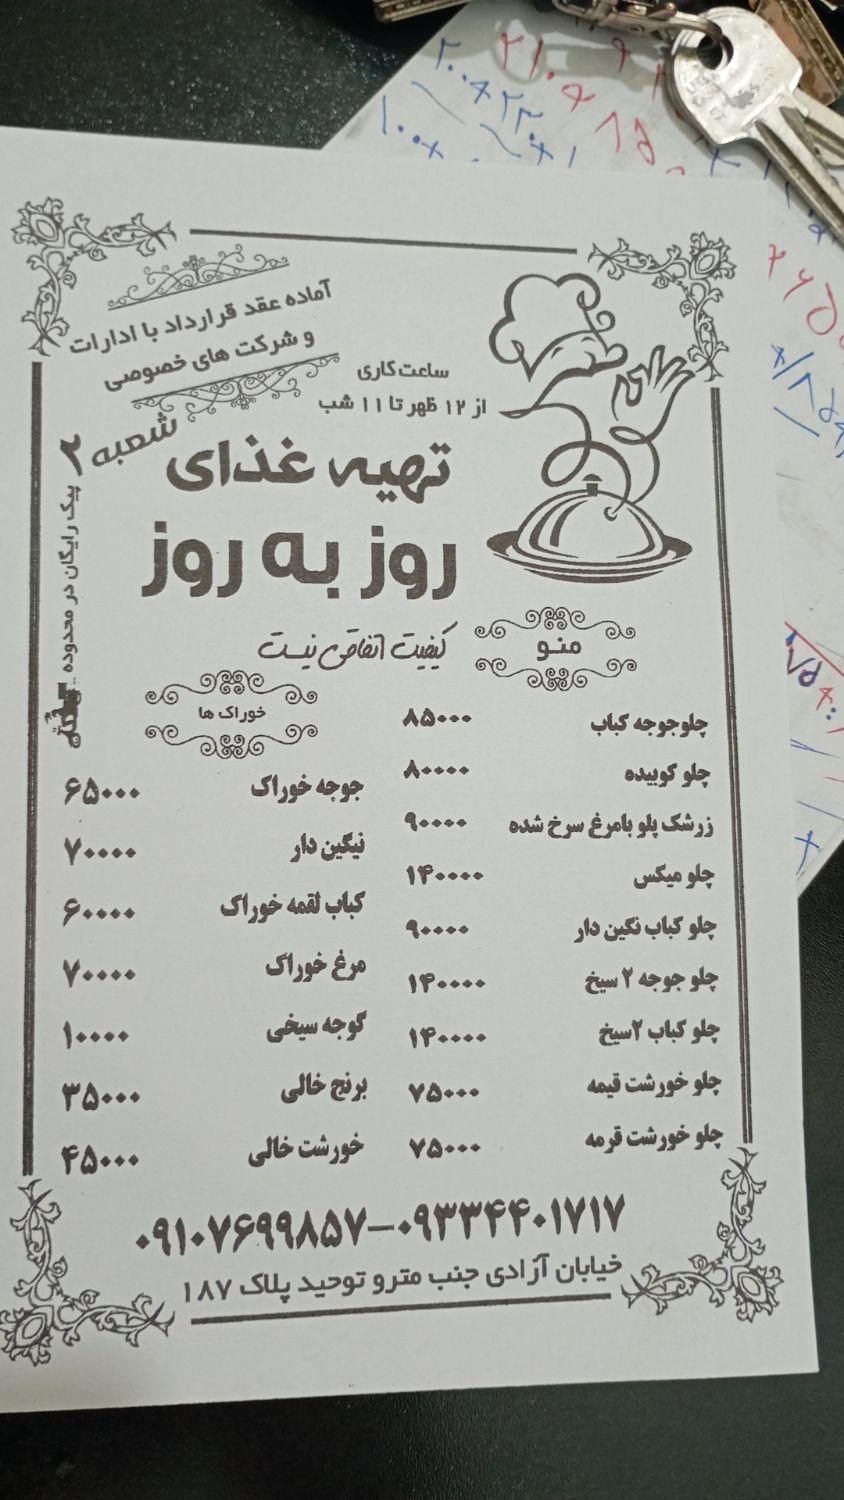 آماده عقد قرارداد با ادارات
و شرکت های خصوصی
ساعت کاری
از ۱۲ ظهر تا ۱۱ شب
شعبه ۲
تهیه غذای
روز به روز
پیک رایگان در محدوده
کیفیت اتفاقی نیست
منو
چلوجوجه کباب ۸۵۰۰۰
چلو کوبیده ۸۰۰۰۰
زرشک پلو بامرغ سرخ شده ۹۰۰۰۰
چلو میکس ۱۴۰۰۰۰
چلو کباب نگین دار ۹۰۰۰۰
چلو جوجه ۲ سیخ ۱۴۰۰۰۰
چلو کباب ۲سیخ ۱۴۰۰۰۰
چلو خورشت قیمه ۷۵۰۰۰
چلو خورشت قرمه ۷۵۰۰۰
خوراک ها
جوجه خوراک ۶۵۰۰۰
نیگین دار ۷۰۰۰۰
کباب لقمه خوراک ۶۰۰۰۰
مرغ خوراک ۷۰۰۰۰
گوجه سیخی ۱۰۰۰۰
برنج خالی ۳۵۰۰۰
خورشت خالی ۴۵۰۰۰
۰۹۱۰۷۶۹۹۸۵۷-۰۹۳۳۴۴۰۱۷۱۷
خیابان آزادی جنب مترو توحید پلاک ۱۸۷